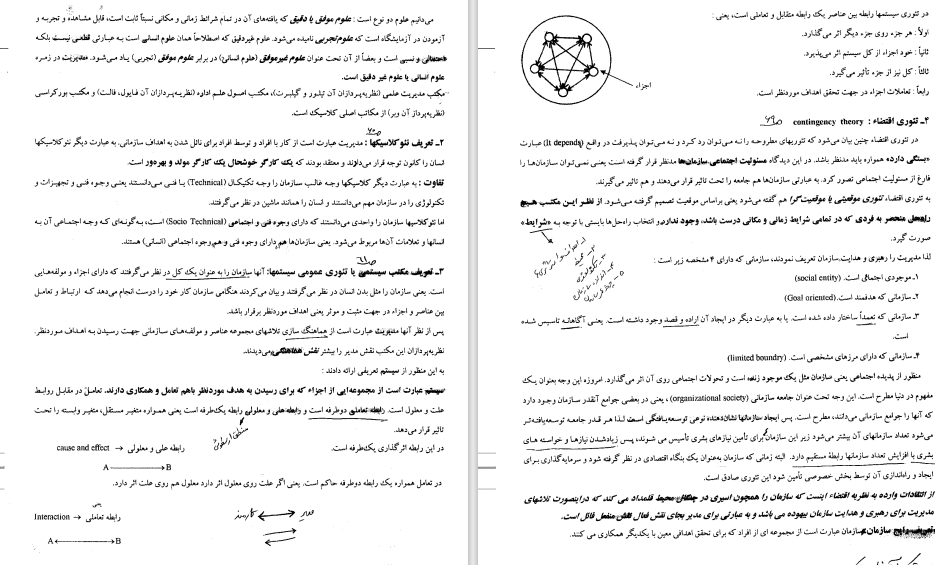 می‌دانیم علوم دو نوع است : علوم موفق یا دقیق که یافته‌های آن در تمام شرائط زمانی و مکانی نسبتاً ثابت است، قابل مشاهده و تجربه و
آزمودن در آزمایشگاه است که علوم تجربی نامیده می‌شود. علوم غیردقیق که اصطلاحاً همان علوم انسانی است به عبارتی قطعی نیست بلکه
احتمالی و نسبی است و بعضاً از آن تحت عنوان علوم غیرموفق (علوم انسانی) در برابر علوم موفق (تجربی) یاد می‌شود. مدیریت در زمره
علوم انسانی یا علوم غیر دقیق است.
مکتب مدیریت علمی (نظریه‌پردازان آن تیلور و گیلبرت)، مکتب اصول علم اداره (نظریه‌پردازان آن فایول، فالت) و مکتب بورکراسی
(نظریه‌پرداز آن وبر) از مکاتب اصلی کلاسیک است.
۲ـ تعریف نئوکلاسیکها : مدیریت عبارت است از کار با افراد و توسط افراد برای نائل شدن به اهداف سازمانی. به عبارت دیگر نئوکلاسیکها
انسان را کانون توجه قرار می‌دادند و معتقد بودند که یک کارگر خوشحال یک کارگر مولد و بهره‌ور است.
تفاوت : به عبارت دیگر کلاسیکها وجه غالب سازمان را وجه تکنیکال (Technical) یا فنی می‌دانستند یعنی وجوه فنی و تجهیزات و
تکنولوژی را در سازمان مهم می‌دانستند و انسان را همانند ماشین در نظر می‌گرفتند.
اما نئوکلاسیکها سازمان را واحدی می‌دانستند که دارای وجوه فنی و اجتماعی (Socio Technical) است، به‌گونه‌ای که وجه اجتماعی آن به
انسانها و تعلامات آن‌ها مربوط می‌شود. یعنی سازمان‌ها هم دارای وجوه فنی و هم وجوه اجتماعی (انسانی) هستند.
۳ـ تعریف مکتب سیستمی یا تئوری عمومی سیستمها: آنها سازمان را به عنوان یک کل در نظر می‌گرفتند که دارای اجزاء و مولفه‌هایی
است. یعنی سازمان را مثل بدن انسان در نظر می‌گرفتند و بیان می‌کردند هنگامی سازمان کار خود را درست انجام می‌دهد که ارتباط و تعامل
بین عناصر و اجزاء در جهت مثبت و موثر یعنی اهداف موردنظر برقرار باشد.
پس از نظر آنها مدیریت عبارت است از هماهنگ سازی تلاشهای مجموعه عناصر و مولفه‌های سازمانی جهت رسیدن به اهداف موردنظر.
نظریه‌پردازان این مکتب نقش مدیر را بیشتر نقش هماهنگی می‌دیدند.
به این منظور از سیستم تعریفی ارائه دادند :
سیستم عبارت است از مجموعه‌ایی از اجزاء که برای رسیدن به هدف موردنظر باهم تعامل و همکاری دارند. تعامل در مقابل روابط
علت و معلول است. رابطه تعاملی دوطرفه است و رابطه علی و معلولی رابطه یک‌طرفه است یعنی همواره متغیر مستقل، متغیر وابسته را تحت
تاثیر قرار می‌دهد.
منطق ارسطویی
در این رابطه اثر گذاری یک‌طرفه است.
رابطه علی و معلولی → cause and effect
A → B
در تعامل همواره یک رابطه دوطرفه حاکم است. یعنی اگر علت روی معلول اثر دارد معلول هم روی علت اثر دارد.
یعنی
رابطه تعاملی → Interaction
A ↔ B
مدیر ↔ کارمند
در تئوری سیستمها رابطه بین عناصر یک رابطه متقابل و تعاملی است، یعنی :
اولاً : هر جزء روی جزء دیگر اثر می‌گذارد.
ثانیاً : خود اجزاء از کل سیستم اثر می‌پذیرد.
ثالثاً : کل نیز از جزء تأثیر می‌گیرد.
رابعاً : تعاملات اجزاء در جهت تحقق اهداف موردنظر است.
اجزاء
۴ـ تئوری اقتضاء : contingency theory
در تئوری اقتضاء چنین بیان می‌شود که تئوریهای مطروحه را نه می‌توان رد کرد و نه می‌توان پذیرفت در واقع (It depends) عبارت
«بستگی دارد» همواره باید مدنظر باشد. در این دیدگاه مسئولیت اجتماعی سازمان‌ها مدنظر قرار گرفته است یعنی نمی‌توان سازمان‌ها را
فارغ از مسئولیت اجتماعی تصور کرد. به عبارتی سازمان‌ها هم جامعه را تحت تاثیر قرار می‌دهند و هم تاثیر می‌گیرند.
به تئوری اقتضاء تئوری موقعیتی یا موقعیت‌گرا هم گفته می‌شود یعنی براساس موقعیت تصمیم گرفته می‌شود. از نظر این مکتب هیچ
راه‌حل منحصر به فردی که در تمامی شرایط زمانی و مکانی درست باشد، وجود ندارد، انتخاب راه‌حل‌ها بایستی با توجه به «شرایط»
صورت گیرد.
لذا مدیریت را رهبری و هدایت سازمان تعریف نمودند، سازمانی که دارای ۴ مشخصه زیر است :
۱ـ موجودی اجتماعی است. (social entity)
۲ـ سازمانی که هدفمند است. (Goal oriented)
۳ـ سازمانی که تعمداً ساختار داده شده است. یا به عبارت دیگر در ایجاد آن اراده و قصد وجود داشته است. یعنی آگاهانه تاسیس شده
است.
۴ـ سازمانی که دارای مرزهای مشخصی است. (limited boundry)
منظور از پدیده اجتماعی یعنی سازمان مثل یک موجود زنده است و تحولات اجتماعی روی آن اثر می‌گذارد. امروزه این وجه بعنوان یک
مفهوم در دنیا مطرح است. این وجه تحت عنوان جامعه سازمانی (organizational society) ، یعنی در بعضی جوامع آنقدر سازمان وجود دارد
که آنها را جوامع سازمانی می‌دانند، مطرح است. پس ایجاد سازمانها نشان‌دهنده نوعی توسعه‌یافتگی است لذا هر قدر جامعه توسعه‌یافته‌تر
می‌شود تعداد سازمانهای آن بیشتر می‌شود زیر این سازمان برای تأمین نیازهای بشری تأسیس می شوند، پس زیادشدن نیازها و خواسته های
بشری با افزایش تعداد سازمانها رابطهٔ مستقیم دارد. البته زمانی که سازمان به‌عنوان یک بنگاه اقتصادی در نظر گرفته شود و سرمایه‌گذاری برای
ایجاد و راه‌اندازی آن توسط بخش خصوصی تأمین شود این تئوری صادق است.
از انتقادات وارده به نظریه اقتضاء اینست که سازمان را همچون اسیری در چنگال محیط قلمداد می کند که دراینصورت تلاشهای
مدیریت برای رهبری و هدایت سازمان بیهوده می باشد و به عبارتی برای مدیر بجای نقش فعال نقش منفعل قائل است.
تعریف رایج سازمان : سازمان عبارت است از مجموعه ای از افراد که برای تحقق اهدافی معین با یکدیگر همکاری می کنند.